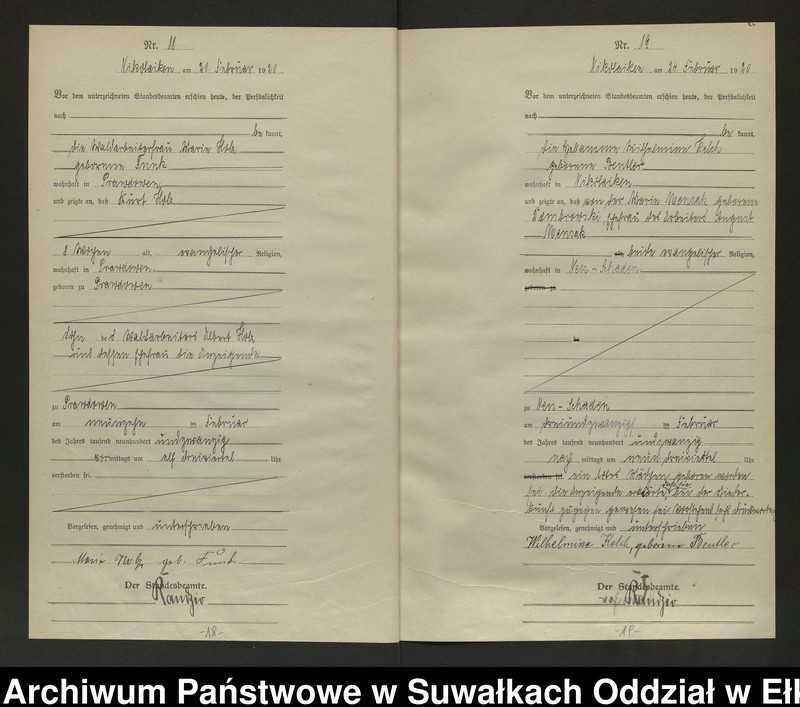 Nr. 18
Nikolaiken, am 20 Februar 1920
Vor dem unterzeichneten Standesbeamten erschien heute, der Persönlichkeit
nach
be kannt,
die Waldarbeiterfrau Marie
geborene Funk
wohnhaft in Prawdowen
und zeigte an, daß Kurt
8 Wochen alt, evangelischer Religion,
wohnhaft in Prawdowen
geboren zu Prawdowen
Sohn des Waldarbeiters Albert
und dessen Ehefrau die Anzeigende
zu Prawdowen
am neunzehn ten Februar
des Jahres tausend neunhundert und zwanzig
vormittags um elf dreiviertel Uhr
verstorben sei.
Vorgelesen, genehmigt und unterschrieben
Marie geb. Funk
Der Standesbeamte.
Randzio
-18-
Nr. 19
Nikolaiken, am 24 Februar 1920
Vor dem unterzeichneten Standesbeamten erschien heute, der Persönlichkeit
nach
be kannt,
die Hebamme Wilhelmine Kelch
geborene Beutler
wohnhaft in Nikolaiken
und zeigte an, daß von der Marie Mensak geborene
Dombrowski, Ehefrau des Arbeiters August
Mensak
alt, beide evangelischer Religion,
wohnhaft in Neu-Schaden
geboren zu
zu Neu-Schaden
am dreiundzwanzig ten Februar
des Jahres tausend neunhundert und zwanzig
nach mittags um neun dreiviertel Uhr
verstorben sei ein totes Mädchen geboren worden
sei. Die Anzeigende erklärte, bei der Nieder-
kunft zugegen gewesen sei
Vorgelesen, genehmigt und unterschrieben
Wilhelmine Kelch, geborene Beutler
Der Standesbeamte.
Randzio
-19-
Archiwum Państwowe w Suwałkach Oddział w Ełk